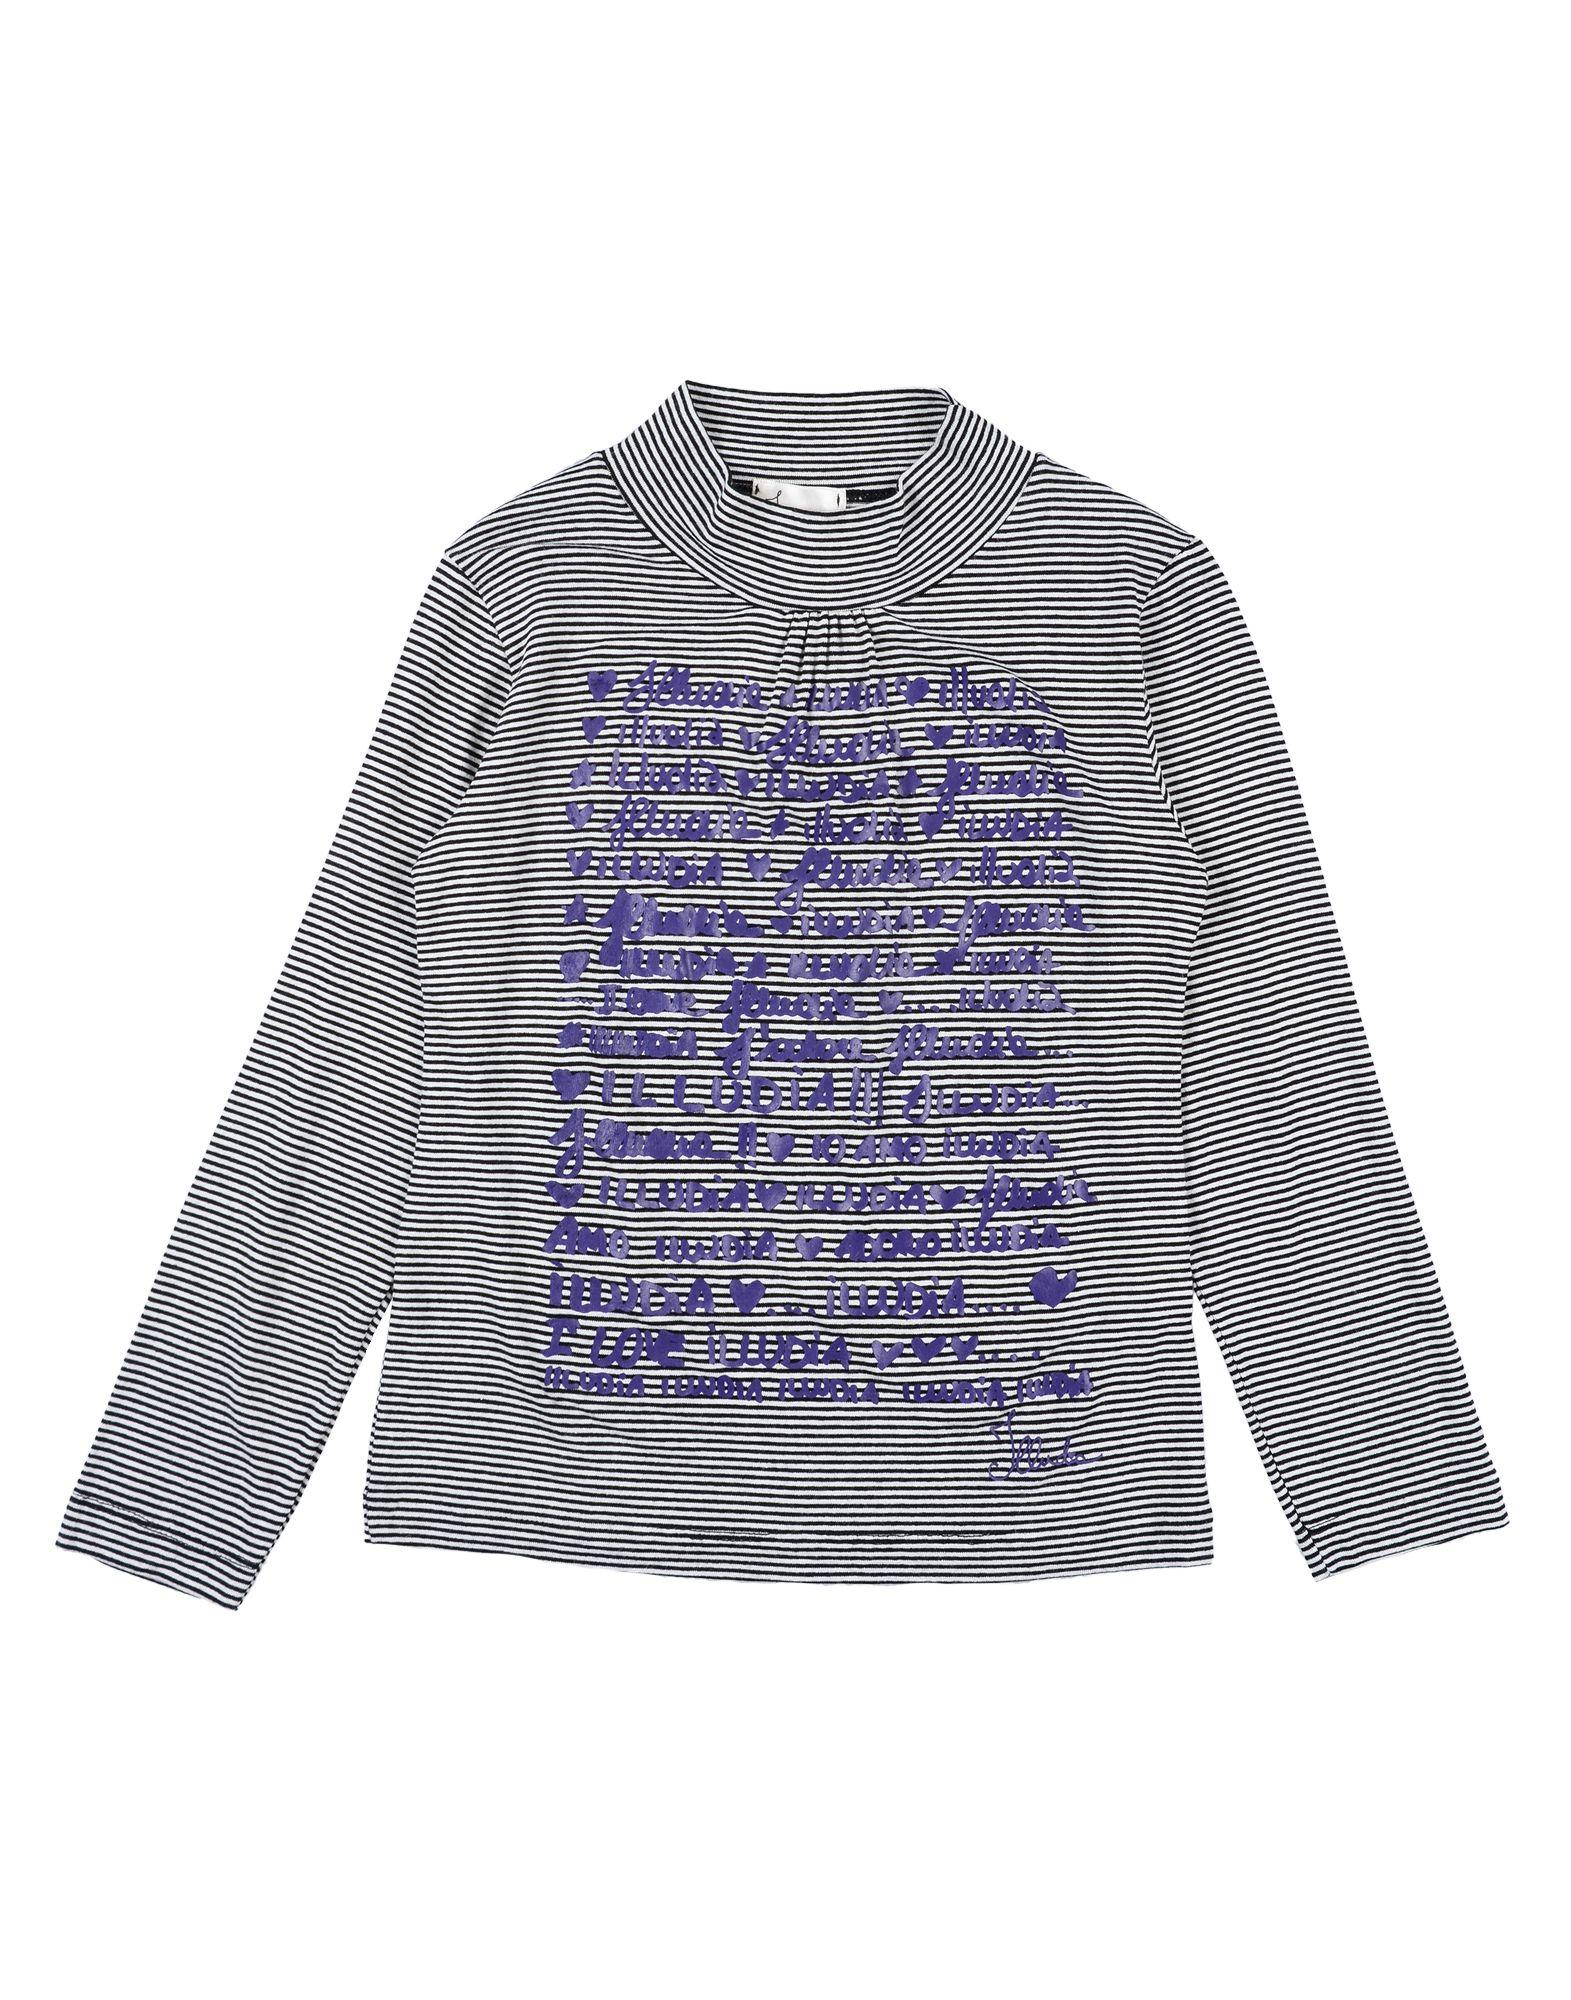 ♥ Illudia ILLUDIA ♥ illudia
♥ illudia ♥ Illudia ♥ ILLUDIA
★ illudia ♥ ILLUDIA ★ Illudia
♥ Illudia ★ illudia ♥ ILLUDIA
♥ ILLUDIA ♥ Illudia ♥ illudia
★ Illudia ♥ ILLUDIA ♥ Illudia
♥ ILLUDIA ★ illudia ★ ILLUDIA
... I LOVE Illudia ♥.... illudia
★ ILLUDIA J'adore Illudia...
♥ ILLUDIA!!! ILLUDIA...
Illudia!! ♥ IO AMO ILLUDIA
♥ ILLUDIA ♥ ILLUDIA ♥ Illudia
AMO ILLUDIA ♥ ADORO ILLUDIA
ILLUDIA ♥.... ILLUDIA.... ♥
I LOVE ILLUDIA ♥♥♥.....
ILLUDIA ILLUDIA ILLUDIA ILLUDIA ILLUDIA
Illudia